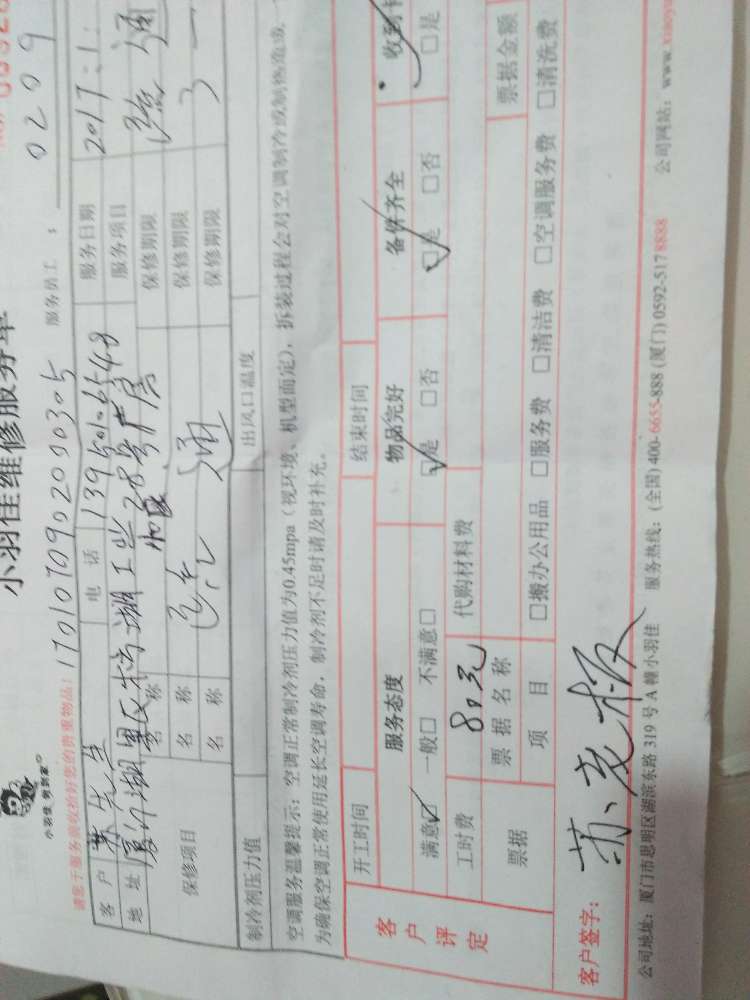 小羽佳维修服务单
小羽佳 何到家
请您于服务前收拾好您的贵重物品!
1701070902090305
服务员工:
0209
客户
苏先生
电话
13950106548
服务日期
2017:1:
地址
服务项目
疏通
保修项目
名称
保修期限
名称
保修期限
名称
保修期限
制冷剂压力值
出风口温度
空调服务温馨提示:空调正常制冷剂压力值为0.45mpa(视环境、机型而定),拆装过程会对空调制冷或制热造成
为确保空调正常使用延长空调寿命,制冷剂不足时请及时补充。
客户评定
开工时间
结束时间
服务态度
物品完好
备件齐全
收到
满意□ 一般□ 不满意□
□是 □否
□是 □否
□是
工时费
80元
代购材料费
票据
票据名称
票据金额
项目
□搬办公用品 □服务费 □清洁费 □空调服务费 □清洗费
客户签字:
公司地址:厦门市思明区湖滨东路319号A幢小羽佳 服务热线:(全国)400-6655-888 (厦门)0592-5178888 公司网站:www.